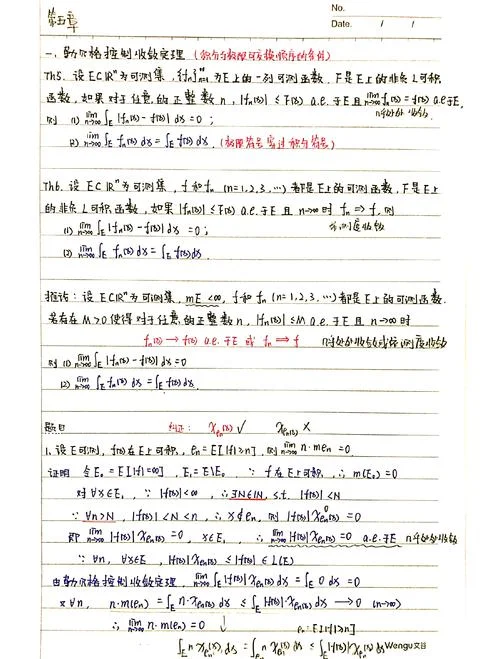 第五章
No.
Date. / /
一、勒贝格控制收敛定理（积分与极限可交换顺序的条件）
Th5. 设E⊂ℝⁿ为可测集，{fₙ}ₙ₌₁^∞为E上的一列可测函数，F是E上的非负L可积
函数，如果对于任意的正整数n，|fₙ(x)| ≤ F(x) a.e.于E且 lim_{n→∞} fₙ(x) = f(x) a.e.于E,
n几乎处处收敛
则 (1) lim_{n→∞} ∫_E |fₙ(x) - f(x)| dx = 0；
(2) lim_{n→∞} ∫_E fₙ(x) dx = ∫_E f(x) dx.（极限符号穿过积分符号）
Th6. 设E⊂ℝⁿ为可测集，f和fₙ (n=1,2,3,…)都是E上的可测函数，F是E上
的非负L可积函数，如果|fₙ(x)| ≤ F(x) a.e.于E且n→∞时 fₙ ⇒ f, 则
依测度收敛
(1) lim_{n→∞} ∫_E |fₙ(x) - f(x)| dx = 0；
(2) lim_{n→∞} ∫_E fₙ(x) dx = ∫_E f(x) dx.
推论：设E⊂ℝⁿ为可测集，mE < ∞, f和fₙ (n=1,2,3,…)都是E上的可测函数.
若存在M>0使得对于任意的正整数n，|fₙ(x)| ≤ M a.e.于E且n→∞时
fₙ(x) → f(x) a.e.于E 或 fₙ ⇒ f 几乎处处收敛或依测度收敛
则 (1) lim_{n→∞} ∫_E |fₙ(x) - f(x)| dx = 0
(2) lim_{n→∞} ∫_E fₙ(x) dx = ∫_E f(x) dx.
题目 纠正： χ_{eₙ}(x) ✓ χ_{eₙ(x)} ×
1. 设E可测，f(x)在E上可积，eₙ = E[|f| ≥ n], 则 lim_{n→∞} n·meₙ = 0.
证明 令E₀ = E[|f| = ∞], E₁ = E\E₀, ∵ f在E上可积，∴ m(E₀) = 0
对∀x∈E₁, ∵ |f(x)| < ∞, ∴ ∃N∈ℕ, s.t. |f(x)| < N
∵ ∀n>N, |f(x)| < N < n, ∴ x∉eₙ, 则 |f(x)|χ_{eₙ}(x) = 0
0
即 lim_{n→∞} |f(x)|χ_{eₙ}(x) = 0, x∈E₁, ∴ lim_{n→∞} |f(x)|χ_{eₙ}(x) = 0 a.e.于E n几乎处处收敛
∵ ∀n, ∀x∈E, |f(x)|χ_{eₙ}(x) ≤ |f(x)| ∈ L(E)
由勒贝格控制收敛定理，lim_{n→∞} ∫_E |f(x)|χ_{eₙ}(x) dx = ∫_E 0 dx = 0
又∀n, n·m(eₙ) = ∫_E n·χ_{eₙ}(x) dx ≤ ∫_E |f(x)|·χ_{eₙ}(x) dx → 0 (n→∞)
∴ lim_{n→∞} n·m(eₙ) = 0 ↓ eₙ: E[|f| ≥ n]
∫_E n χ_{eₙ}(x) dx = ∫_{eₙ} n χ_{eₙ}(x) dx ≤ ∫_{eₙ} |f(x)|χ_{eₙ}(x) dx
Wengu文谷